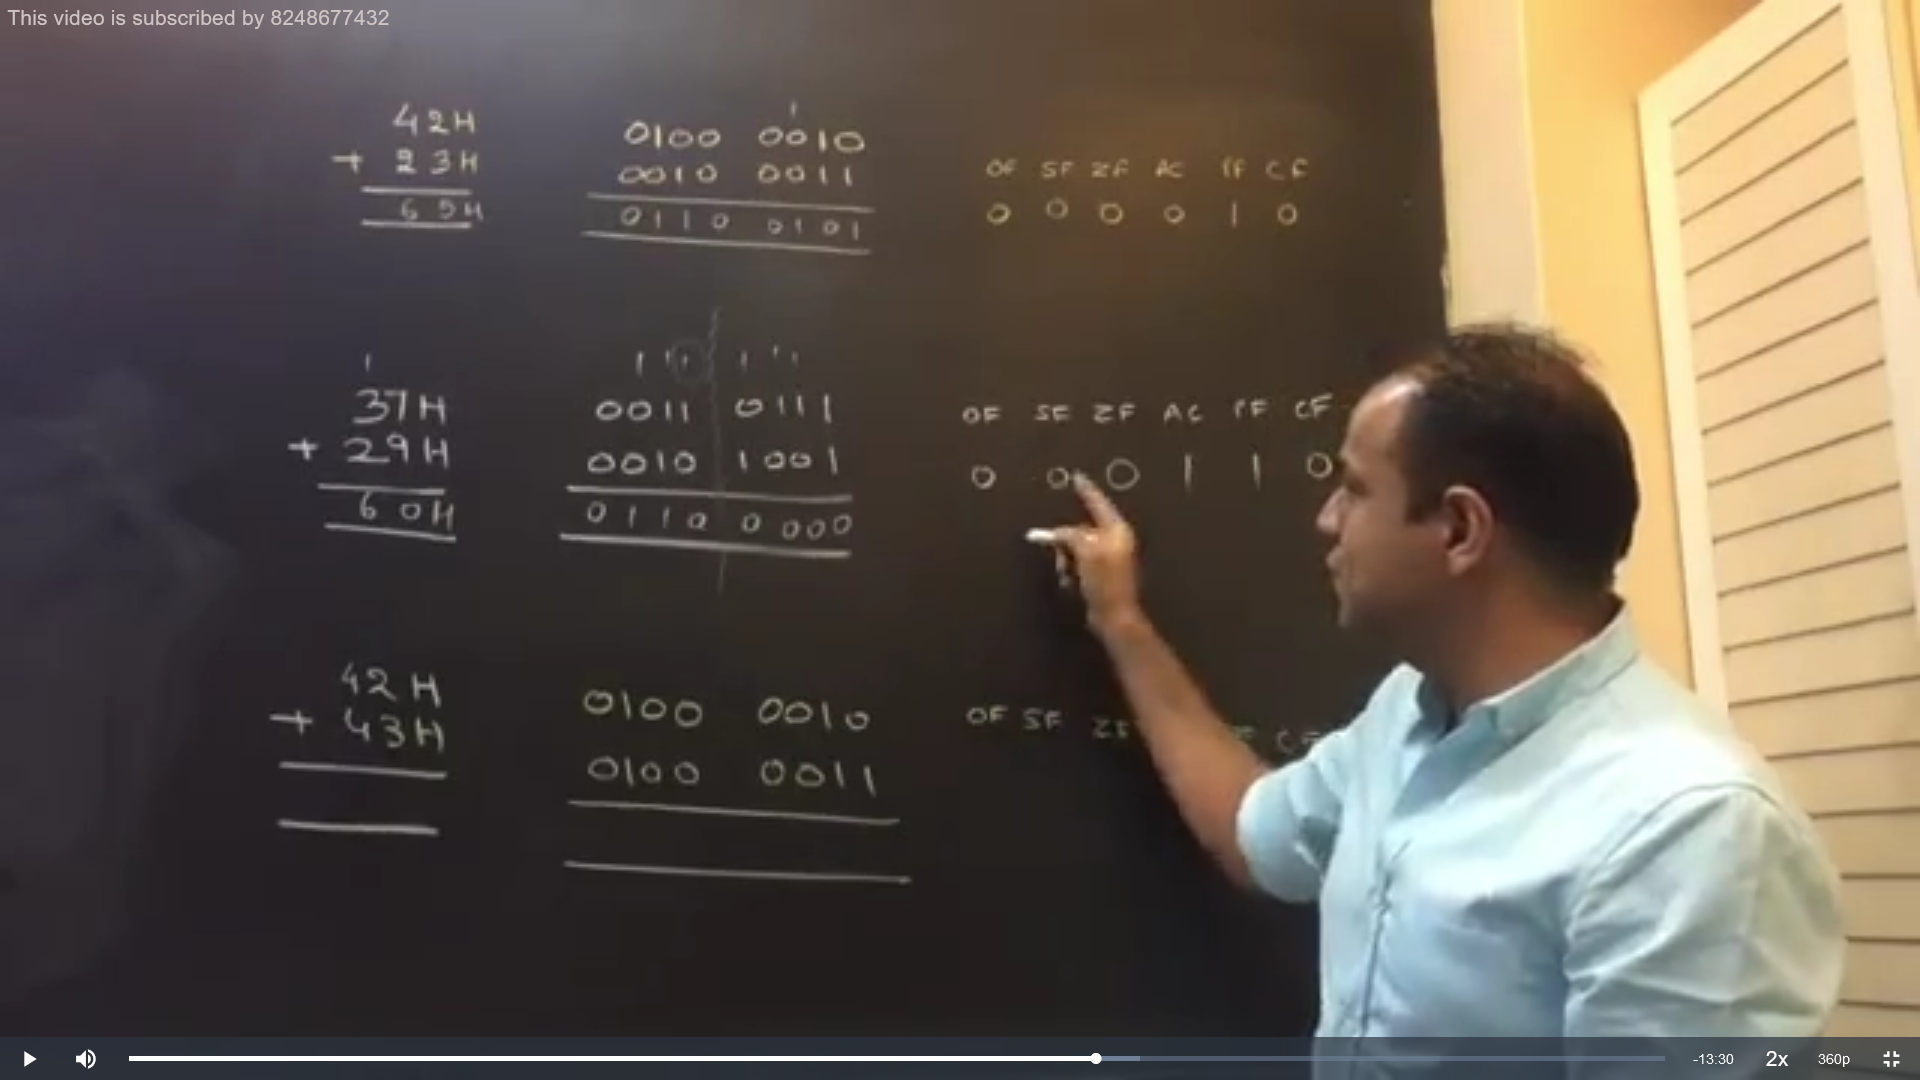 This video is subscribed by 8248677432
42H
+ 23H
65H
1
0100 0010
0010 0011
0110 0101
OF SF ZF AC PF CF
0 0 0 0 1 0
1
37H
+ 29H
60H
1 1 1 1 1 1
0011 0111
0010 1001
0110 0000
OF SF ZF AC PF CF
0 0 0 1 1 0
42H
+ 43H
0100 0010
0100 0011
OF SF
-13:30
2x
360p